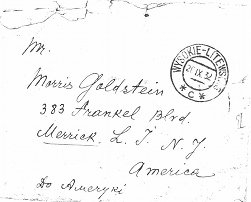 Mr.
WYSOKIE-LITEWSKIE
21 IX 37
* c *
Morris Goldstein
383 Frankel Blvd.
Merrick L. I. N. Y.
America
Do Ameryki